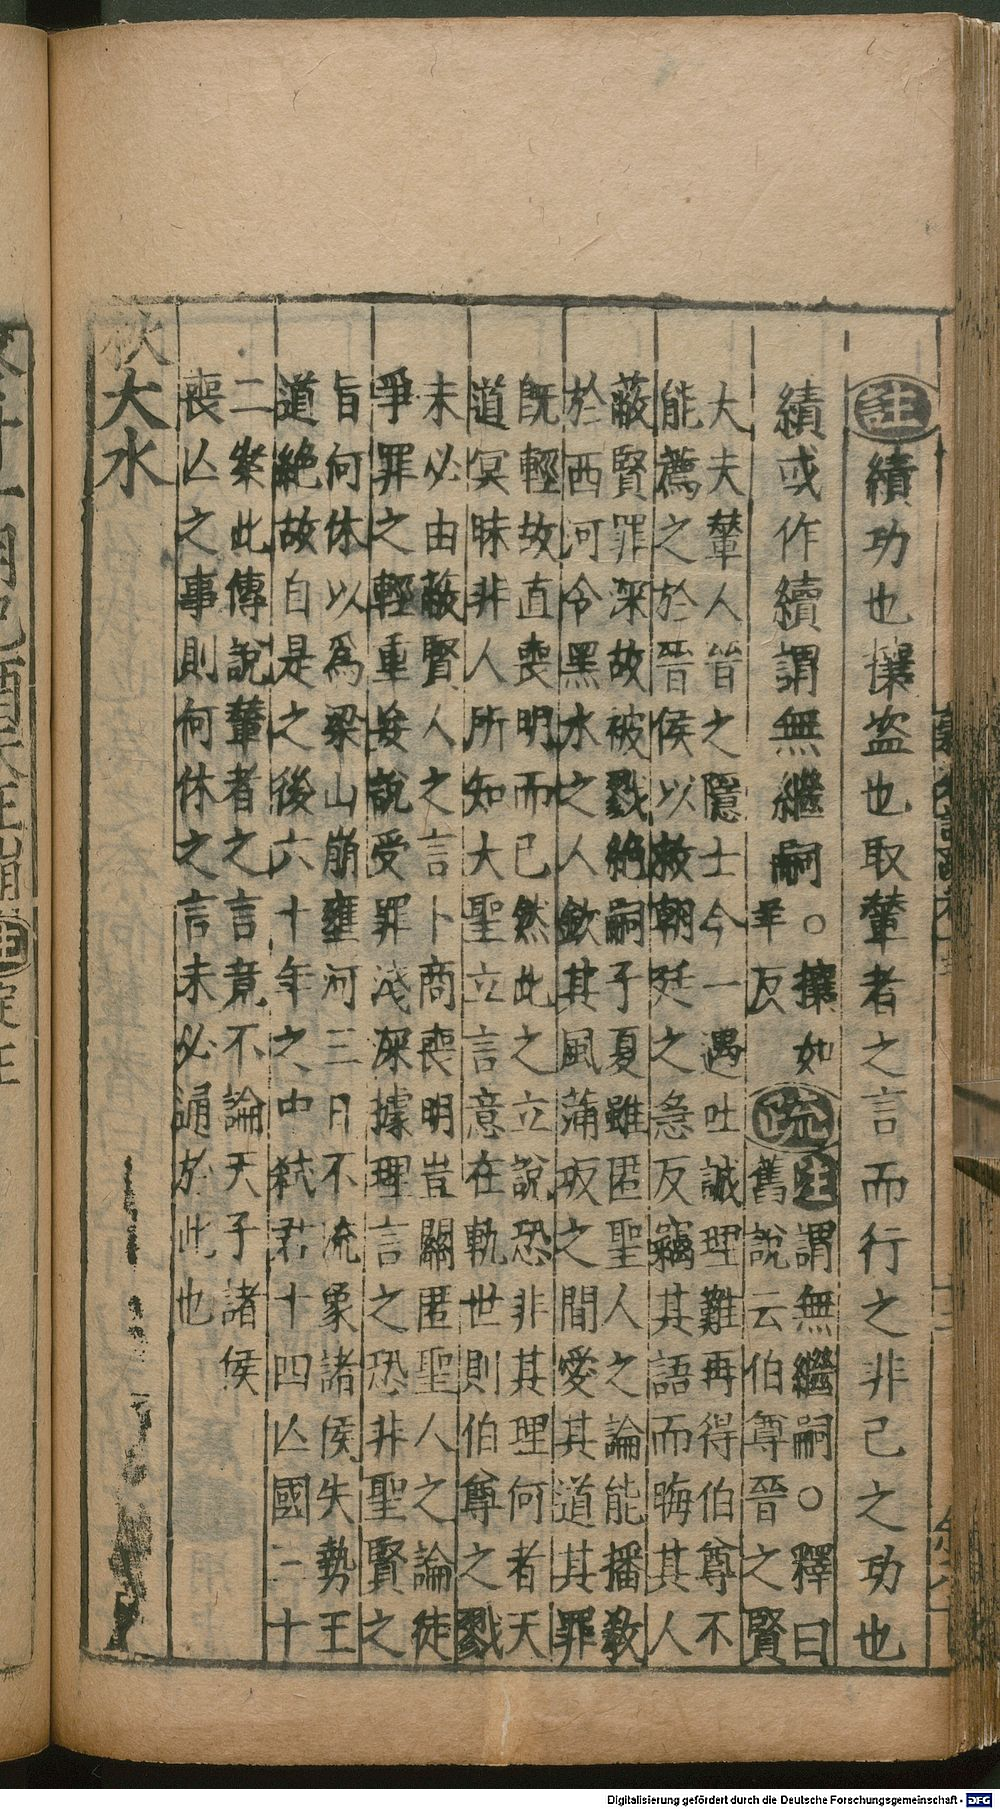 註績功也攘盗也取輦者之言而行之非己之功也
績或作續謂無繼嗣○攘如
羊反
疏註謂無繼嗣○釋曰
舊說云伯尊晉之賢
大夫輦人晉之隱士今一遇吐誠理難再得伯尊不
能薦之於晉侯以救朝廷之急反竊其語而晦其人
蔽賢罪深故被戮絶嗣子夏雖匿聖人之論能播教
於西河令黑水之人欽其風蒲坂之間愛其道其罪
旣輕故直喪明而已然此之立說恐非其理何者天
道冥昧非人所知大聖立言意在軌世則伯尊之戮
未必由蔽賢人之言卜商喪明豈關匿聖人之論徒
爭罪之輕重妄說受罪淺深據理言之恐非聖賢之
旨何休以爲梁山崩壅河三日不流象諸侯失勢王
道絶故自是之後六十年之中弑君十四亾國三十
二案此傳說輦者之言竟不論天子諸侯
喪亾之事則何休之言未必通於此也
秋大水
Digitalisierung gefördert durch die Deutsche Forschungsgemeinschaft - DFG